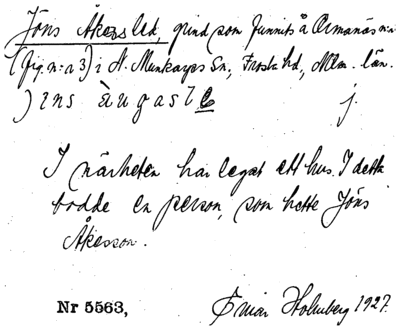 Jöns Åkessled, grind som funnits å Ormanäs n:o
(fig. n:a 3) i N. Munkarps Sn, Frosta hd, Mlm. län.
) ı n s à u g a s l e j.
I närheten har legat ett hus. I detta
bodde en person, som hette Jöns
Åkesson.
Nr 5563, Einar Holmberg 1927.